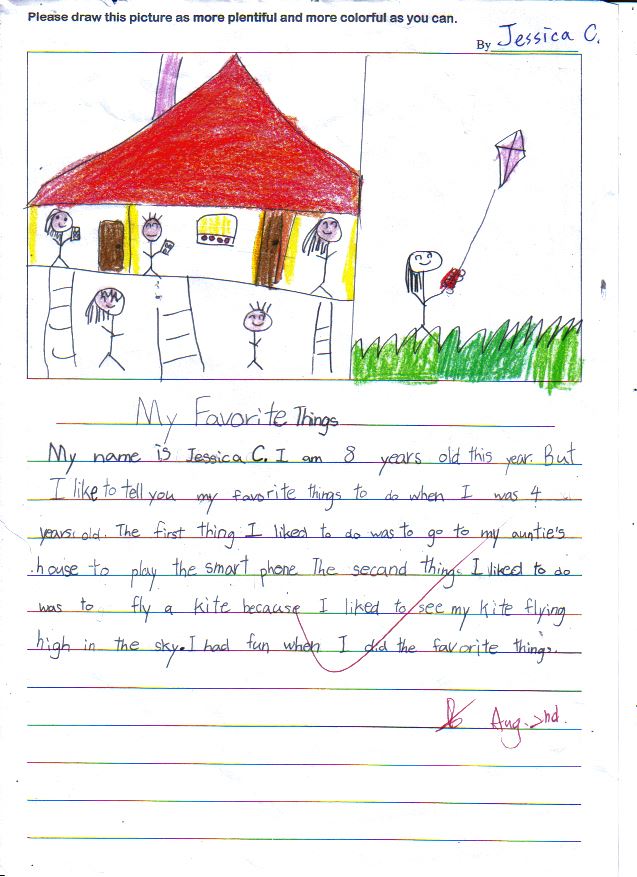 Please draw this picture as more plentiful and more colorful as you can.
By Jessica C.
My Favorite Things
My name is Jessica C. I am 8 years old this year. But
I like to tell you my favorite things to do when I was 4
years old. The first thing I liked to do was to go to my auntie's
house to play the smart phone. The second thing I liked to do
was to fly a kite because I liked to see my kite flying
high in the sky. I had fun when I did the favorite things.
Aug. 2nd.